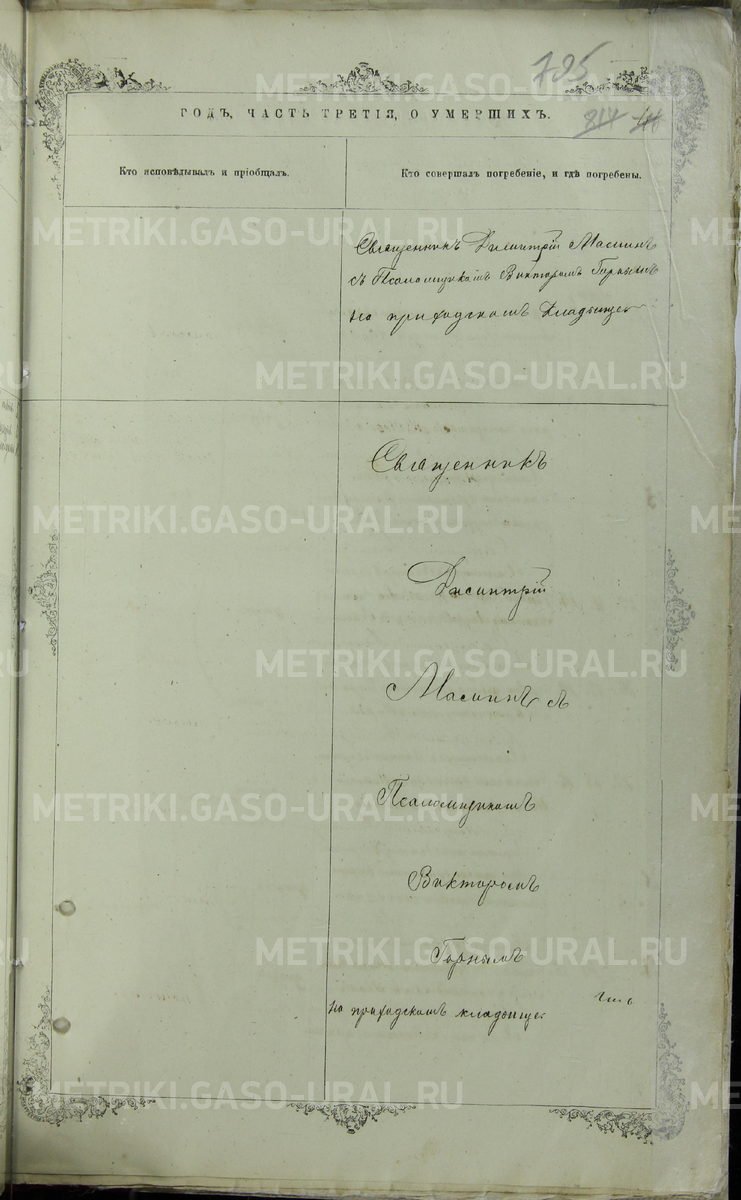 795
317
ГОДЪ, ЧАСТЬ ТРЕТІЯ, О УМЕРШИХЪ.
Кто исповѣдывалъ и пріобщалъ.
Кто совершалъ погребеніе, и гдѣ погребены.
Священникъ Димитрій Масминъ
съ Псаломщикомъ Викторомъ Горнымъ
на приходскомъ кладбище
Священникъ
Димитрій
Масминъ съ
Псаломщикомъ
Викторомъ
Горнымъ
на приходскомъ кладбище
METRIKI.GASO-URAL.RU